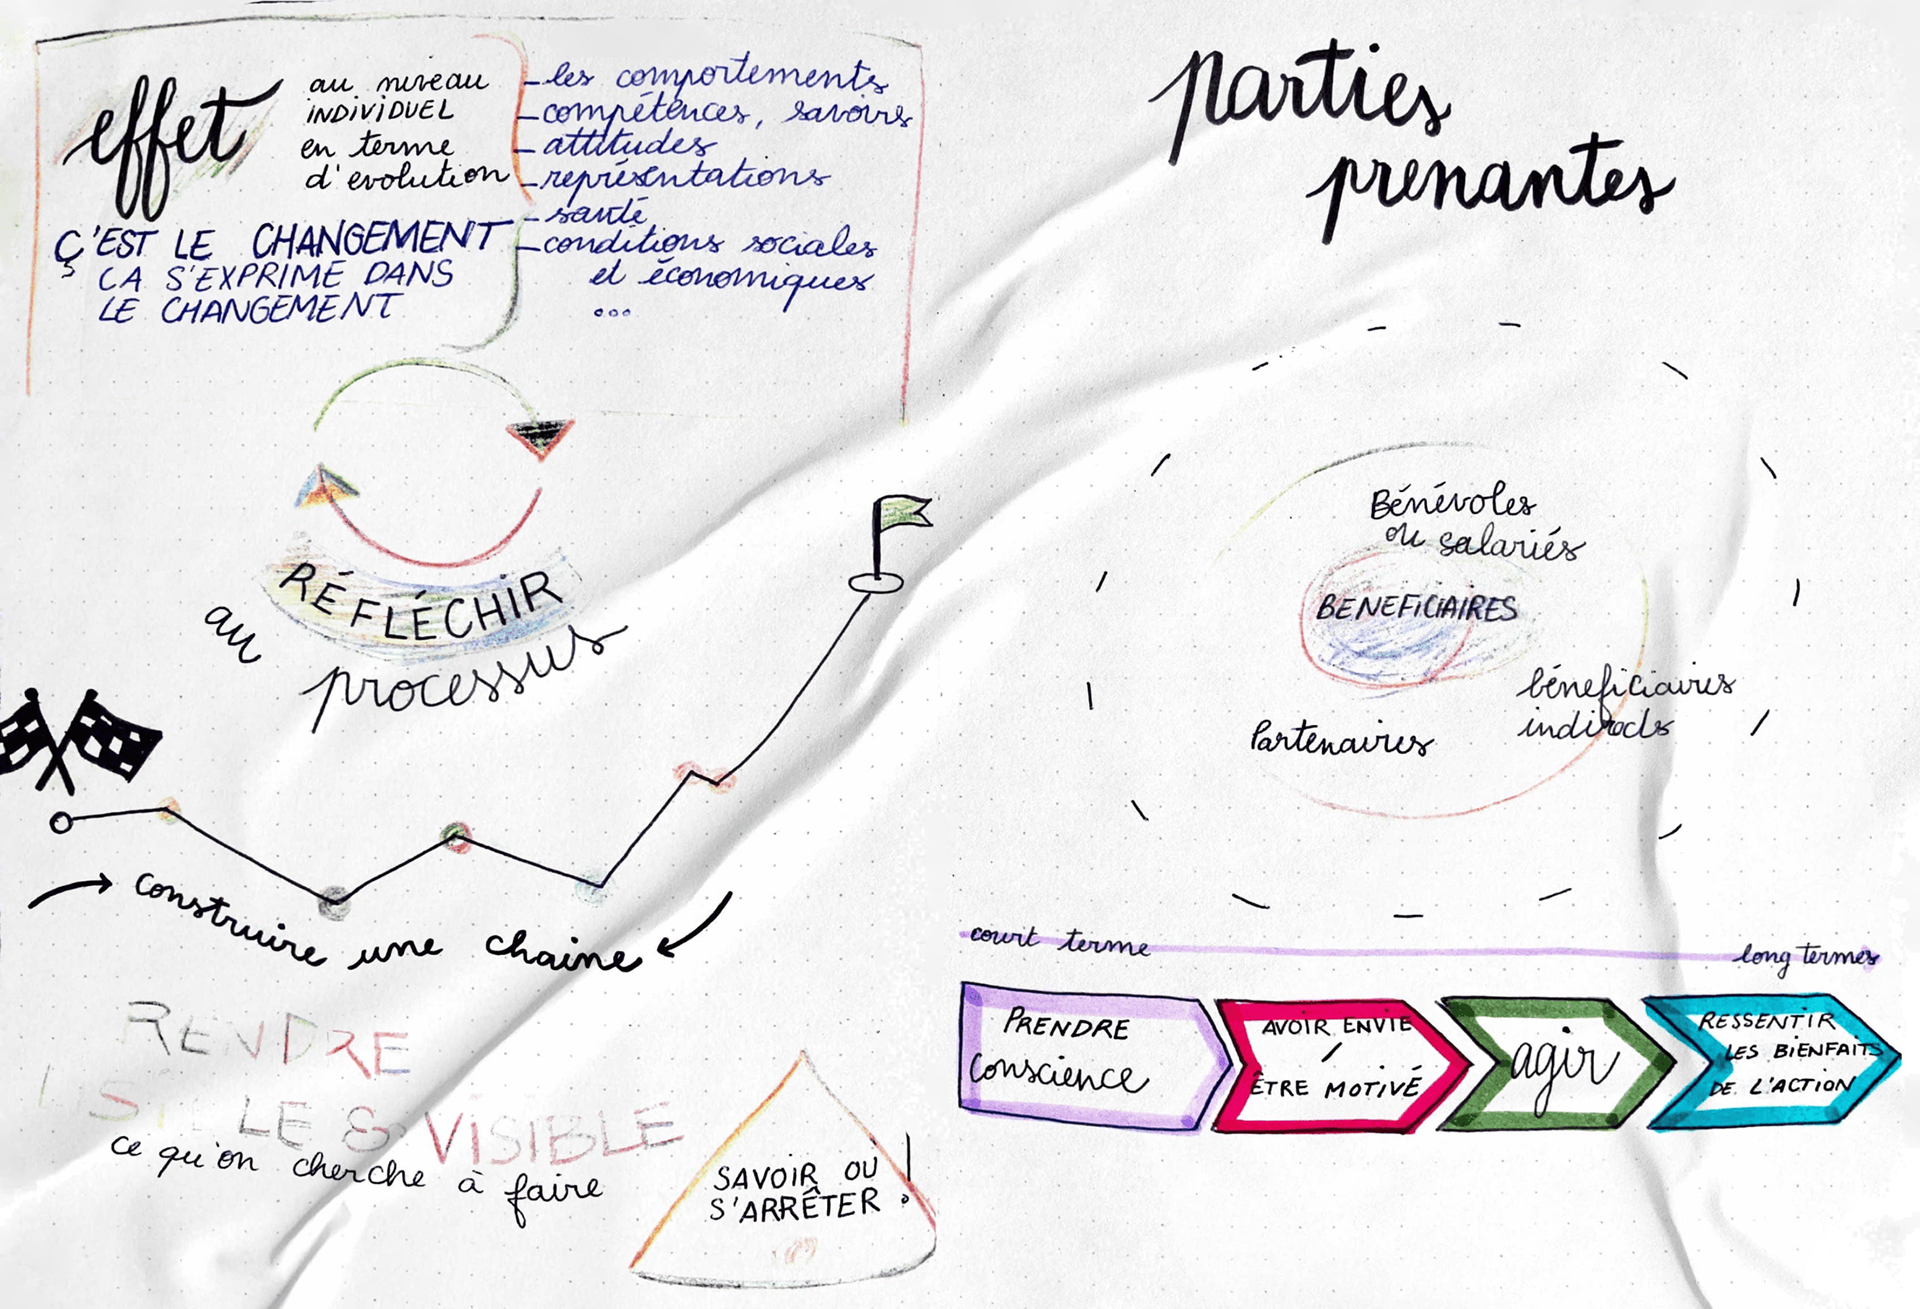 effet
au niveau
INDIVIDUEL
en terme
d'evolution
- les comportements
- compétences, savoirs
- attitudes
- représentations
- santé
- conditions sociales
et économiques
...
Ç'EST LE CHANGEMENT
CA S'EXPRIME DANS
LE CHANGEMENT
RÉFLÉCHIR
au processus
construire une chaine
RENDRE
LE & VISIBLE
ce qu'on cherche à faire
SAVOIR OU
S'ARRÊTER !
parties
prenantes
Bénévoles
ou salariés
BENEFICIAIRES
bénéficiaires
indirects
Partenaires
court terme
long termes
PRENDRE
conscience
AVOIR ENVIE
/
ÊTRE MOTIVÉ
agir
RESSENTIR
LES BIENFAITS
DE L'ACTION